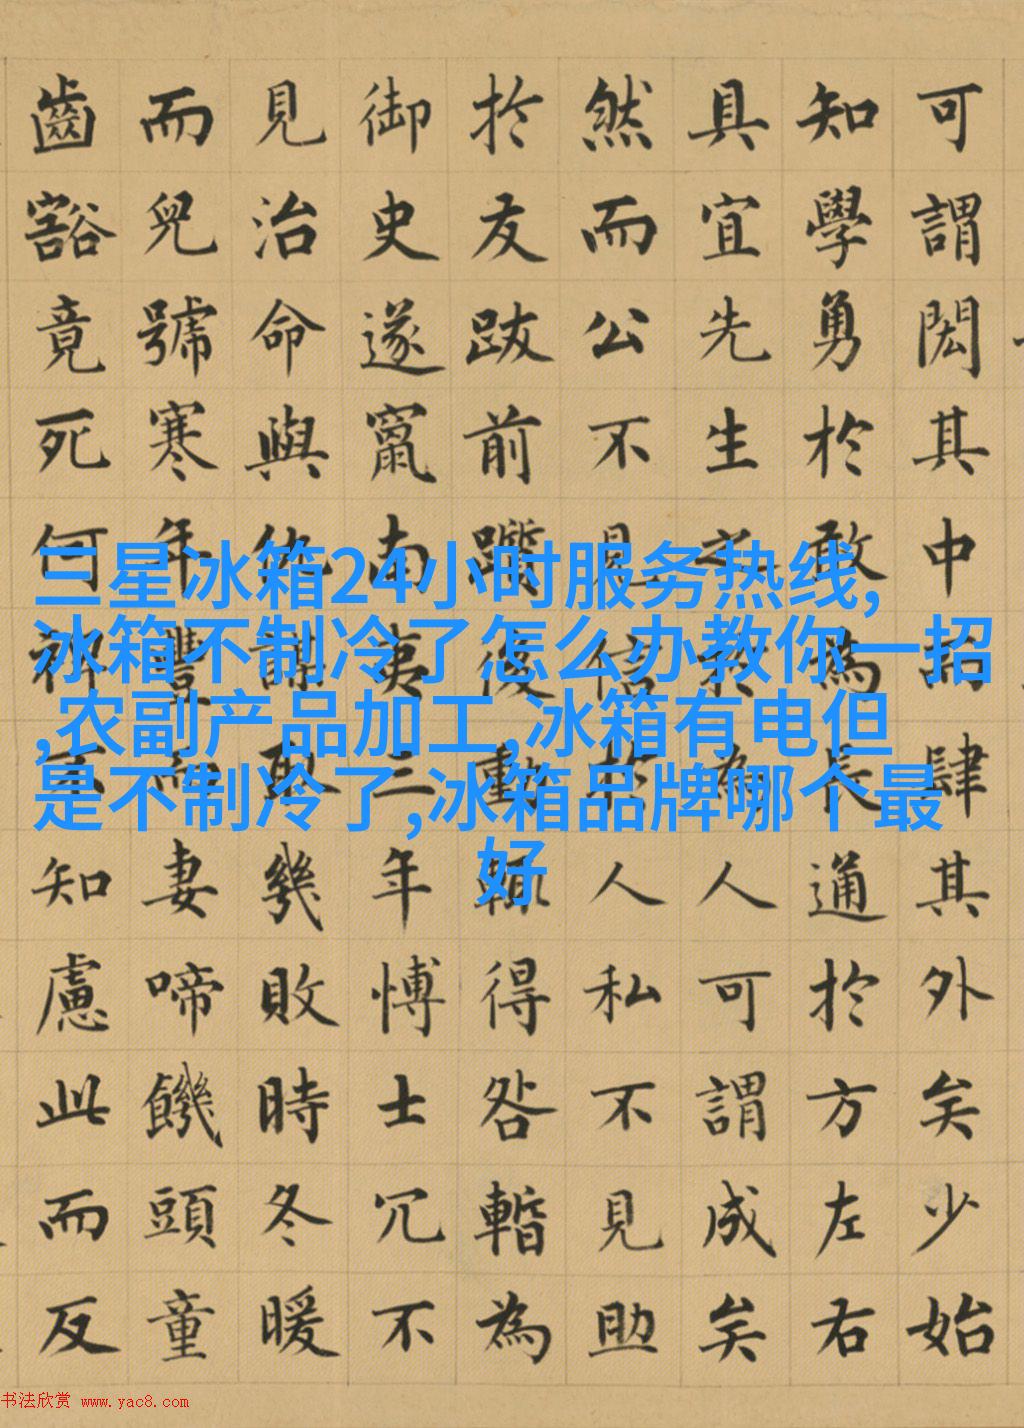 可謂閎其中而肆其外矣少始
知學勇於敢為長通於方左右
具宜先生之於為人可謂成矣
然而公不見信於人私不見助
於友跋前躓後動輒得咎暫為
御史遂竄南夷三年愽士冗不
見治命與仇謀取幾敗時冬暖
而兒號寒年豐而妻啼饑頭童
齒豁竟死何裨不知慮此而反
三星冰箱24小时服务热线,
冰箱不制冷了怎么办教你一招
,农副产品加工,冰箱有电但
是不制冷了,冰箱品牌哪个最
好
书法欣赏 www.yac8.com